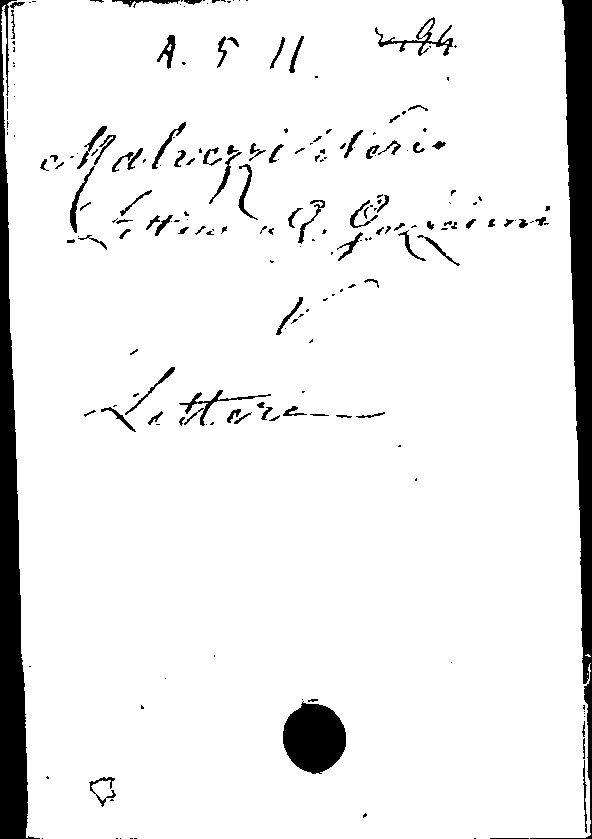 A. 5 11
Malvezzi Neri
Lettere a G. Gozzadini
V
Lettere